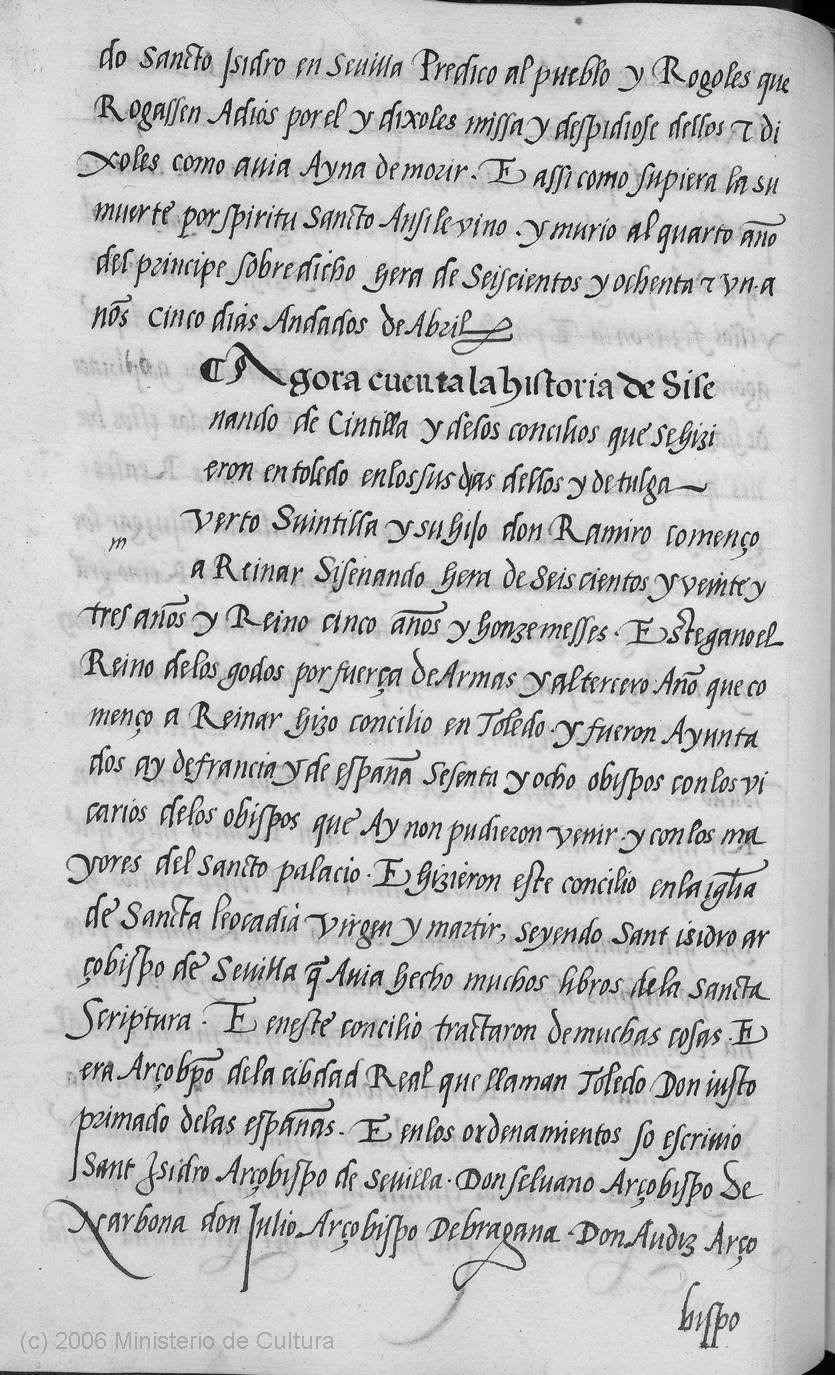 do Sancto Isidro en Sevilla Predico al pueblo y Rogoles que
Rogassen Adios por el y dixoles missa y despidiose dellos τ di
xoles como avia Ayna de morir. E assi como supiera la su
muerte por spiritu Sancto Ansile vino. y murio al quarto año
del principe sobredicho hera de Seiscientos y ochenta τ vn. a
nos Cinco dias Andados de Abril
Agora cuenta la historia de Sise
nando de Cintilla y delos concilios que se hizi
eron en toledo en los sus dias dellos y de tulga
m
verto Suintilla y su hijo don Ramiro començo
a Reinar Sisenando hera de Seiscientos y veinte y
tres años y Reino cinco años y honze messes. Este gano el
Reino de los godos por fuerça de Armas y al tercero Año que co
menço a Reinar hizo concilio en Toledo. y fueron Ayunta
dos ay de francia y de españa Sesenta y ocho obispos con los vi
carios de los obispos que Ay non pudieron venir. y con los ma
yores del Sancto palacio. E hizieron este concilio en la iglia
de Sancta leocadia virgen y martir, seyendo Sant isidro ar
çobispo de Sevilla q̃ Avia hecho muchos libros de la Sancta
Scriptura. E en este concilio tractaron de muchas cosas. E
era Arçobpo de la cibdad Real que llaman Toledo Don iusto
primado de las españas. E en los ordenamientos so escrivio
Sant Isidro Arçobispo de Sevilla. Don seluano Arçobispo de
Narbona don Julio Arçobispo De bragana. Don Audiz Arço
bispo
(c) 2006 Ministerio de Cultura